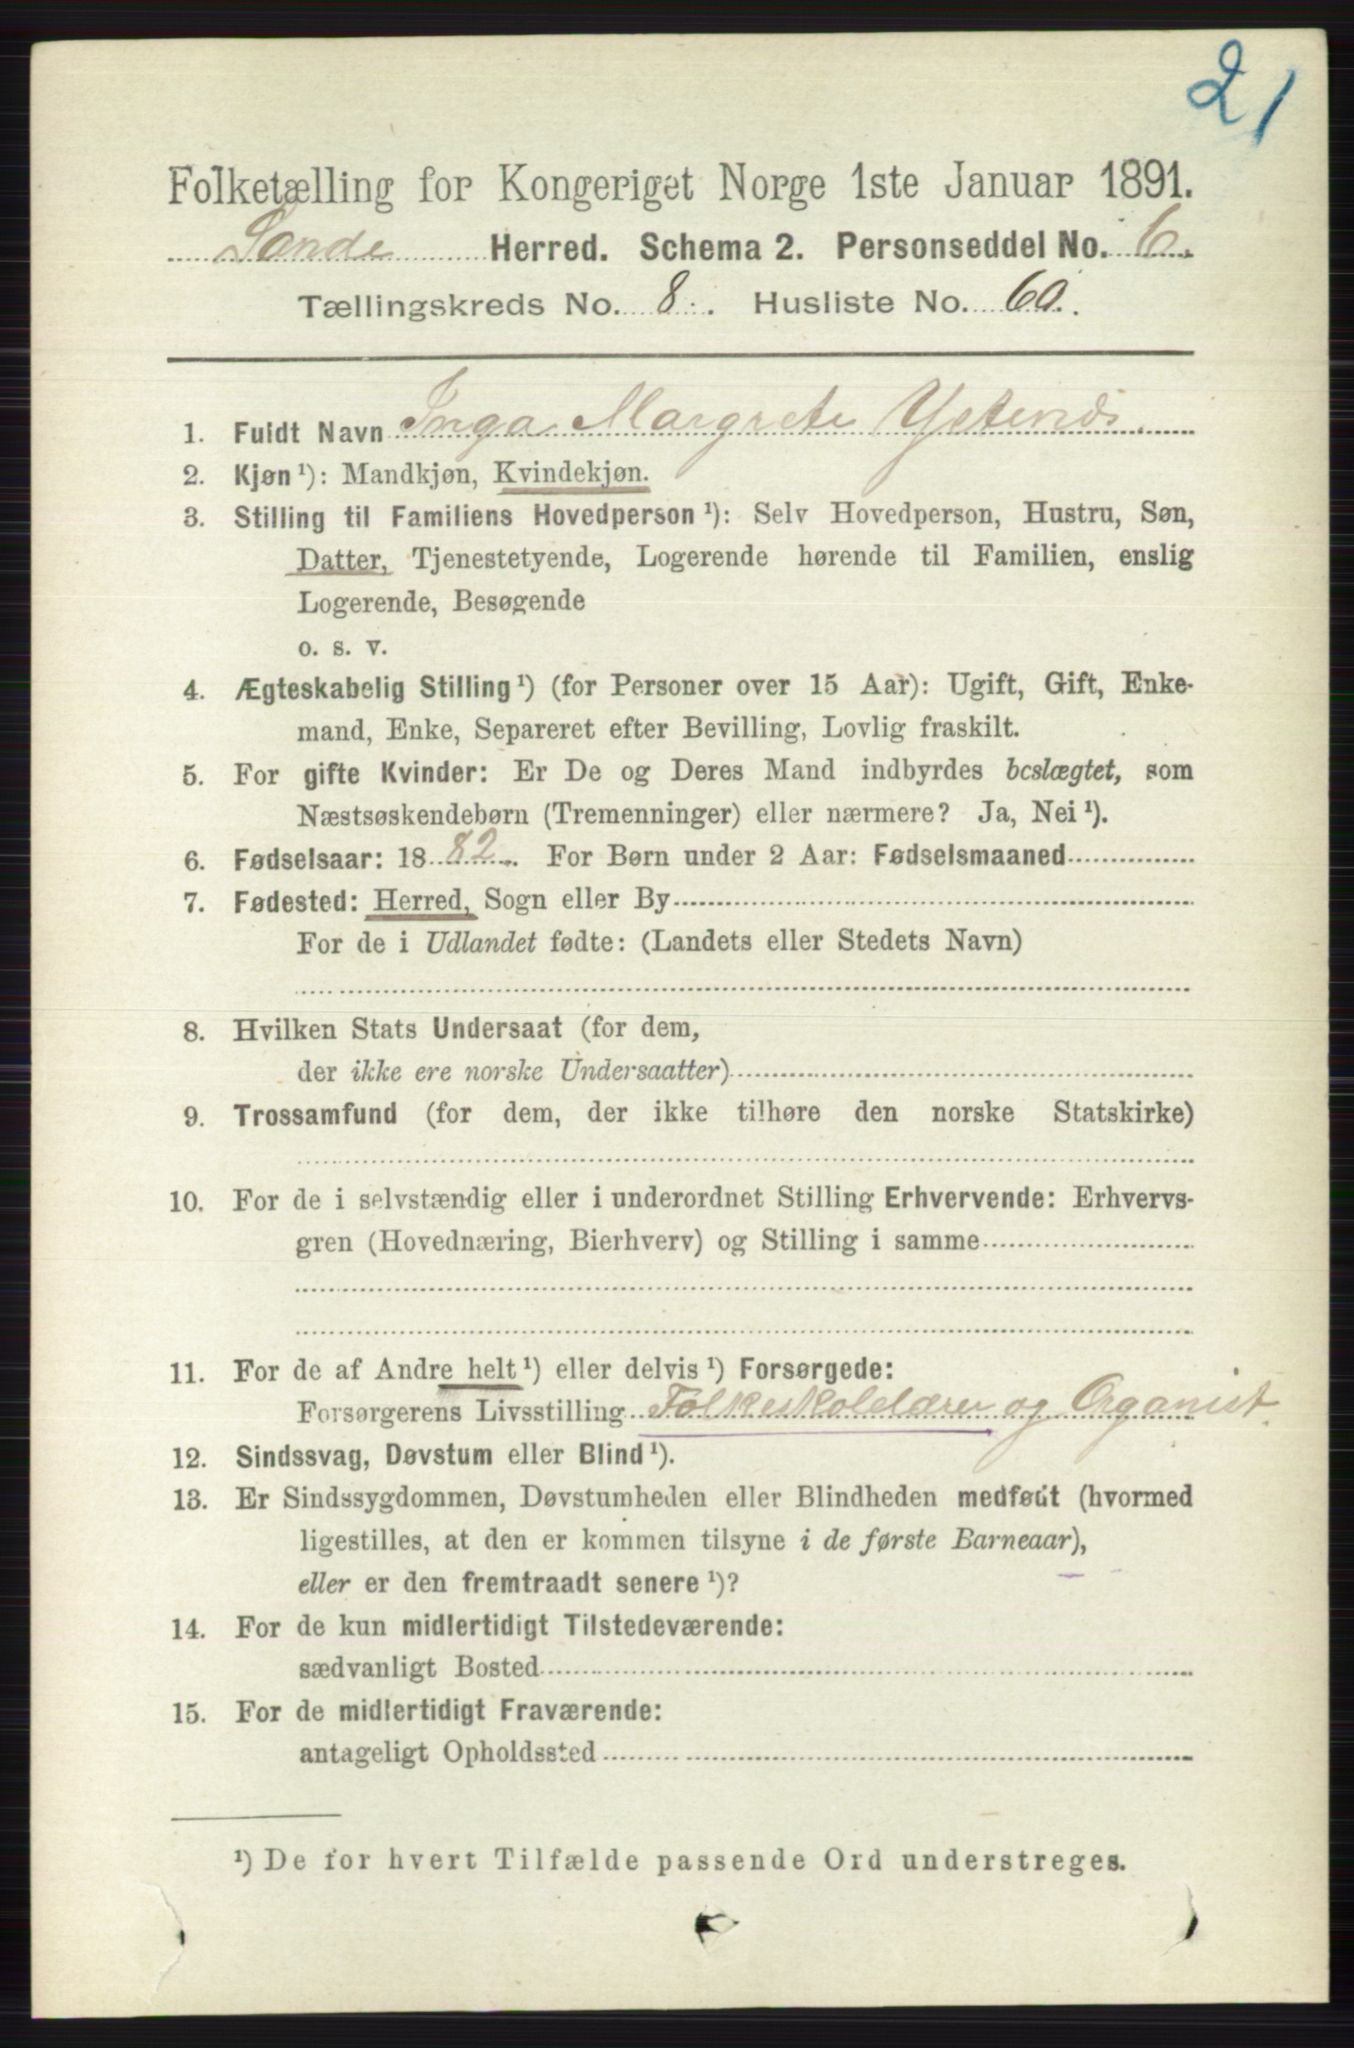 21
Folketælling for Kongeriget Norge 1ste Januar 1891.
Sande Herred. Schema 2. Personseddel No. 6.
Tællingskreds No. 8. Husliste No. 60.
1. Fuldt Navn Inga Margrete
2. Kjøn ¹): Mandkjøn, Kvindekjøn.
3. Stilling til Familiens Hovedperson ¹): Selv Hovedperson, Hustru, Søn,
Datter, Tjenestetyende, Logerende hørende til Familien, enslig
Logerende, Besøgende
o. s. v.
4. Ægteskabelig Stilling ¹) (for Personer over 15 Aar): Ugift, Gift, Enke-
mand, Enke, Separeret efter Bevilling, Lovlig fraskilt.
5. For gifte Kvinder: Er De og Deres Mand indbyrdes beslægtet, som
Næstsøskendebørn (Tremenninger) eller nærmere? Ja, Nei ¹).
6. Fødselsaar: 1882. For Børn under 2 Aar: Fødselsmaaned
7. Fødested: Herred, Sogn eller By
For de i Udlandet fødte: (Landets eller Stedets Navn)
8. Hvilken Stats Undersaat (for dem,
der ikke ere norske Undersaatter)
9. Trossamfund (for dem, der ikke tilhøre den norske Statskirke)
10. For de i selvstændig eller i underordnet Stilling Erhvervende: Erhvervs-
gren (Hovednæring, Bierhverv) og Stilling i samme
11. For de af Andre helt ¹) eller delvis ¹) Forsørgede:
Forsørgerens Livsstilling Folkeskolelærer og Organist.
12. Sindssvag, Døvstum eller Blind ¹).
13. Er Sindssygdommen, Døvstumheden eller Blindheden medfødt (hvormed
ligestilles, at den er kommen tilsyne i de første Barneaar),
eller er den fremtraadt senere ¹)?
14. For de kun midlertidigt Tilstedeværende:
sædvanligt Bosted
15. For de midlertidigt Fraværende:
antageligt Opholdssted
¹) De for hvert Tilfælde passende Ord understreges.